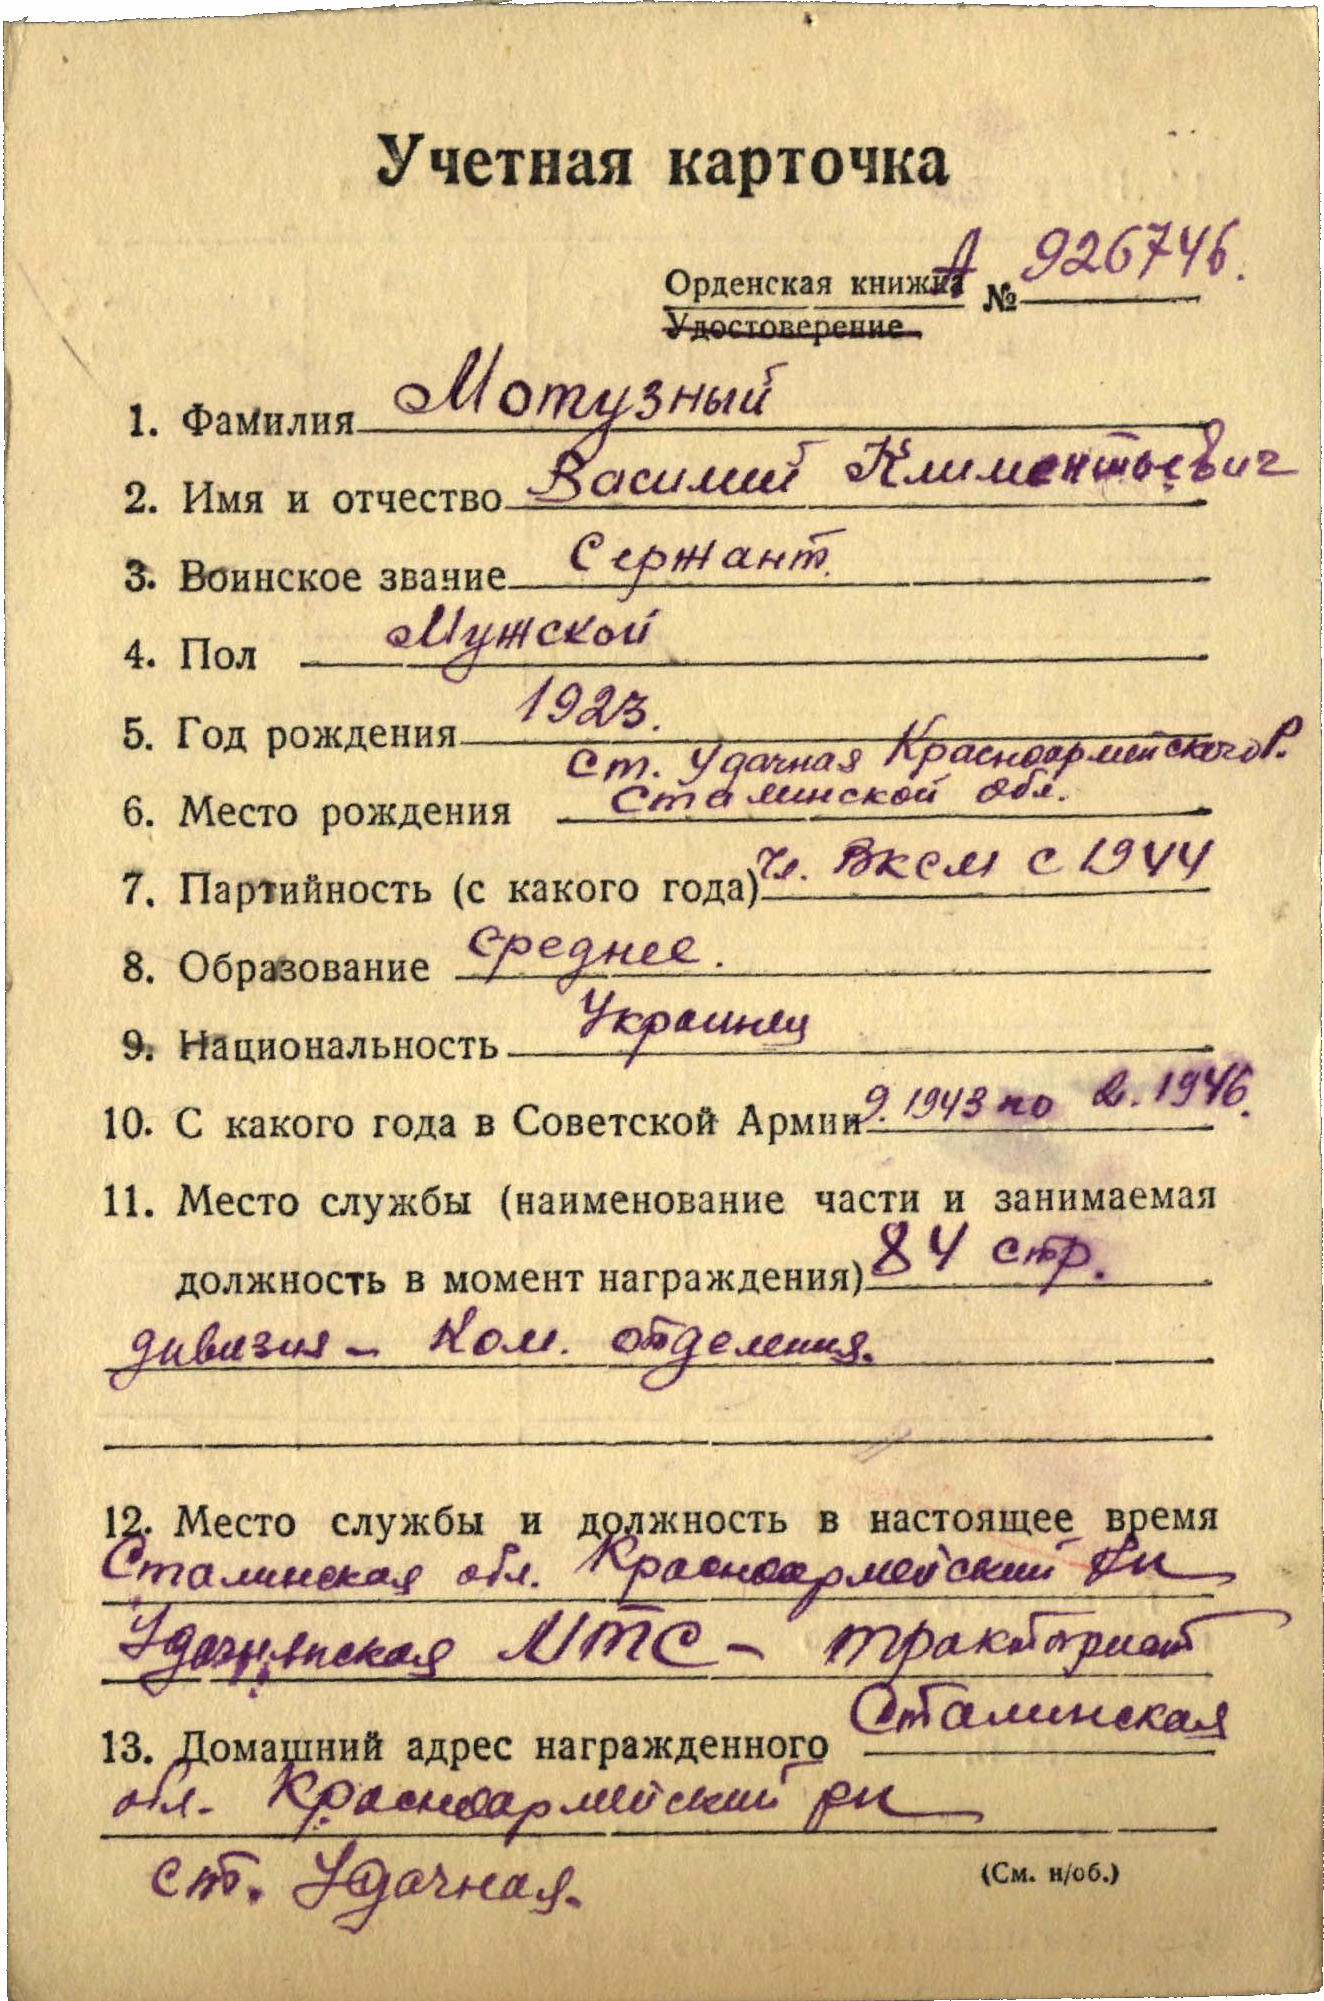 Учетная карточка
Орденская книжка А № 926746.
Удостоверение
1. Фамилия Мотузный
2. Имя и отчество Василий Климентьевич
3. Воинское звание Сержант.
4. Пол Мужской
5. Год рождения 1923.
ст. Удачная Красноармейского Р.
6. Место рождения Сталинской обл.
7. Партийность (с какого года) чл. ВКСМ с 1944
8. Образование среднее.
9. Национальность Украинец
10. С какого года в Советской Армии 9. 1943 по 2. 1946.
11. Место службы (наименование части и занимаемая
должность в момент награждения) 84 стр.
дивизия - Ком. отделения.
12. Место службы и должность в настоящее время
Сталинская обл. Красноармейский рн
МТС - тракторист
13. Домашний адрес награжденного Сталинская
обл. Красноармейский рн
ст. Удачная.
(См. н/об.)